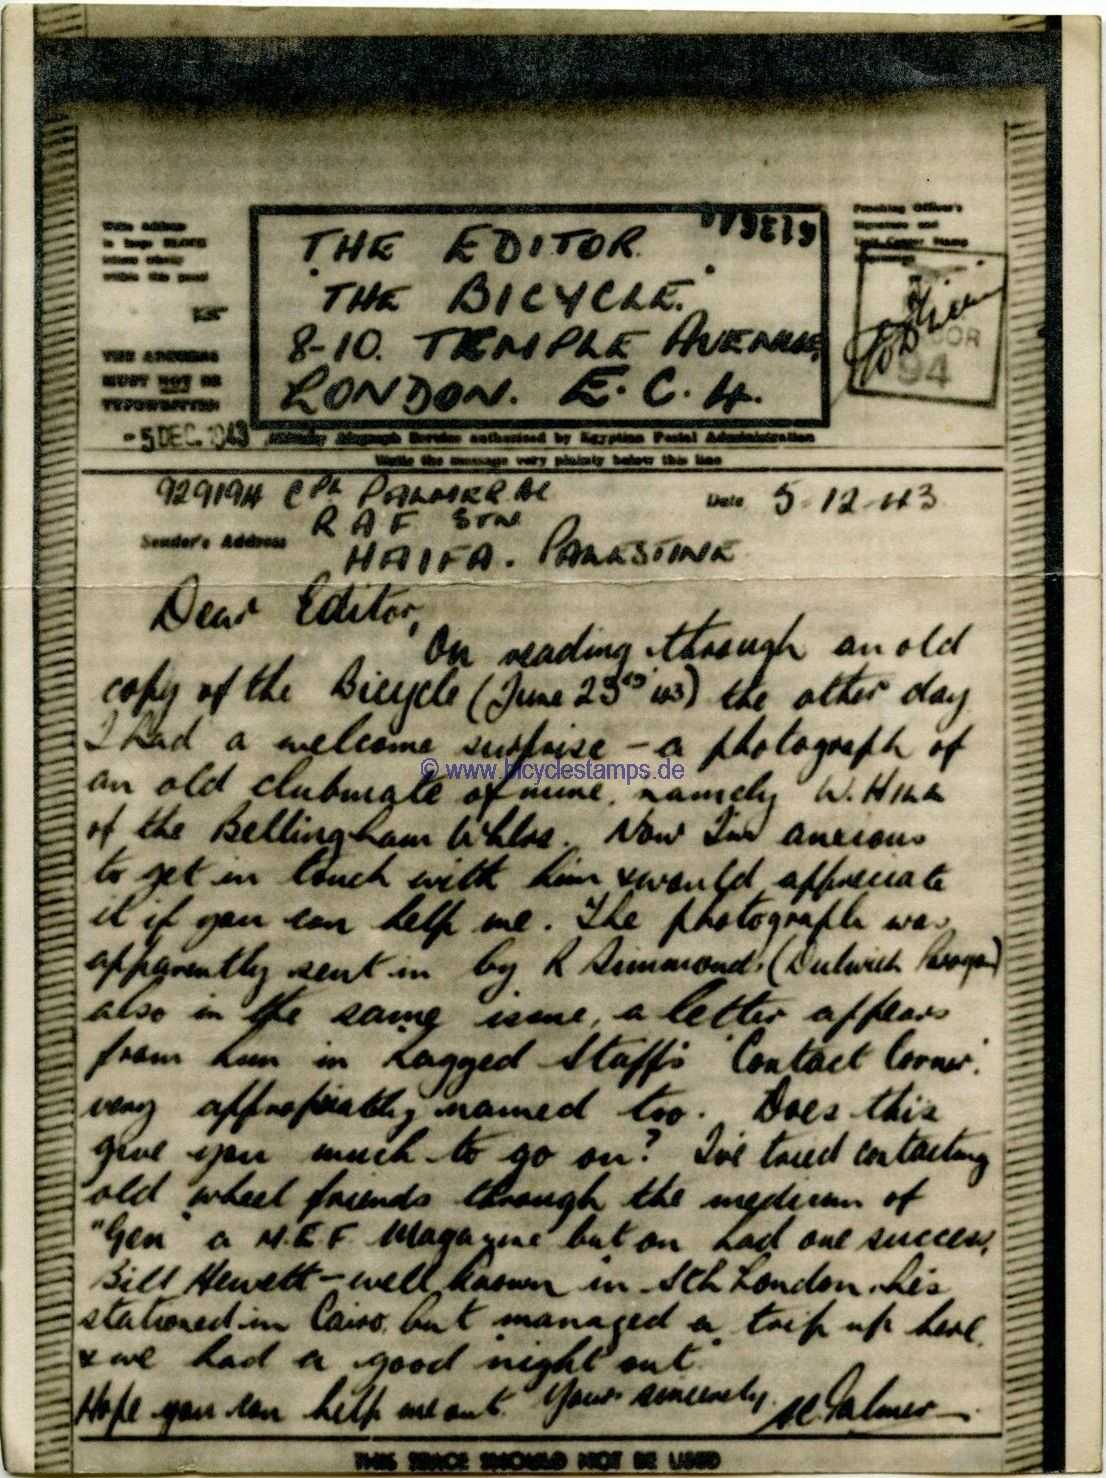 Write address
in large BLOCK
letters wholly
within this panel
THE ADDRESS
MUST NOT BE
TYPEWRITTEN
- 5 DEC. 1943
THE EDITOR.
"THE BICYCLE."
8-10. TEMPLE AVENUE,
LONDON. E.C.4.
Signature and
94
Airgraph Service authorised by Egyptian Postal Administration
Write the message very plainly below this line
929194 CPL PALMER
Date 5-12-43
Sender's Address
RAF STN
HAIFA. PALESTINE
Dear Editor,
On reading through an old
copy of the Bicycle (June 23rd '43) the other day
I had a welcome surprise - a photograph of
an old clubmate of mine, namely W.
of the Bellingham Whlrs. Now I'm anxious
to get in touch with him & would appreciate
it if you can help me. The photograph was
apparently sent in by R Simmonds (Dulwich Paragon)
also in the same issue, a letter appears
from him in Ragged Staff's 'Contact Corner'.
very appropriately named too. Does this
give you much to go on? I've tried contacting
old wheel friends through the medium of
"Gen" a M.E.F Magazine but on had one success,
Bill Hewett - well known in Sth London. he's
stationed in Cairo, but managed a trip up here.
& we had a good night out.
Hope you can help me out. Yours sincerely,
Palmer
THIS SPACE SHOULD NOT BE USED
© www.bicyclestamps.de